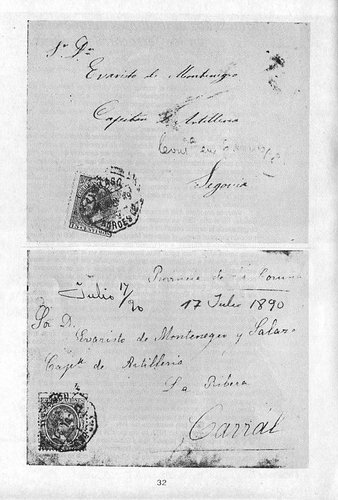 Sr. Dn.
Evaristo de Montenegro
Capitán de Artillería
Segovia
CENTIMOS
Provincia de la Coruña
Julio 17/90
17 Julio 1890
Sor. D.
Evaristo de Montenegro y Salazar
Capn. de Artillería
La Ribera
Carral
32